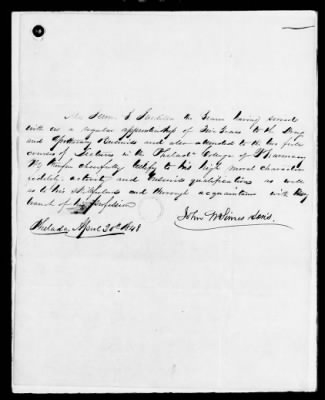 the bearer having served
with us a regular apprenticeship of Six Years to the Drug
and business and also attended to the two full
courses of Lectures in the Philada College of Pharmacy
We cheerfully testify to his high moral character
and business qualifications as well
as to his skillfulness and through acquaintance with every
branch of his profession
John
Philada, April 20th 1848